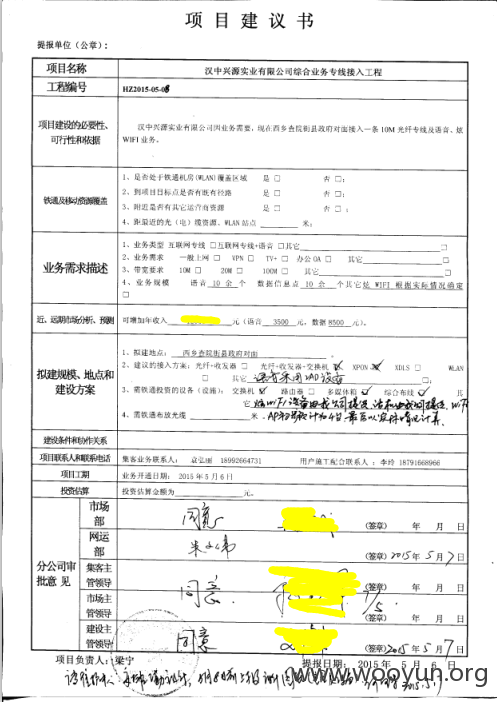 项目建议书
提报单位（公章）：
项目名称 汉中兴源实业有限公司综合业务专线接入工程
工程编号 HZ2015-05-08
项目建设的必要性、可行性和依据 汉中兴源实业有限公司因业务需要，现在西乡查院街县政府对面接入一条 10M 光纤专线及语音、炫
WIFI 业务。
铁通及移动资源覆盖
1、是否处于铁通机房(WLAN)覆盖区域 是 □ 否 □；
2、到项目目标点是否有既有径路 是 □ 否 □；
3、附近是否有其它运营商资源 是 □ 否 □；
4、距最近的光（电）缆资源、WLAN 站点 米；
业务需求描述
1、业务类型 互联网专线 □互联网专线+语音 □其它
2、业务需求 一般上网 □ VPN □ TV+ □ 办公 OA □ 其它
3、带宽要求 10M □ 20M □ 100M □ 其它
4、业务规模 语音 10 余 个 数据信息点 10 余 个其它炫 WIFI 根据实际情况确定
□
近、远期市场分析、预测 可增加年收入 元（语音 3500 元，数据 8500 元）。
拟建规模、地点和建设方案
1、拟建地点： 西乡查院街县政府对面
2、建议的接入方案：光纤+收发器 □ 光纤+收发器+交换机 ☑ XPON ☑ XDLS □ WLAN
□ 其它 语音采用IAD设备
3、需铁通投资的设备（设施）：交换机 ☑ 路由器 □ 多媒体箱 ☑ 综合布线 ☑ 其
它
4、需铁通布放光缆 米。
建设条件和协作关系
项目联系人和联系电话 集客业务联系人： 袁弘丽 18992664731 用户施工配合联系人：李玲 18791668966
项目工期 业务开通日期：2015 年 5 月 6 日
投资估算 投资估算金额为 元。
分公司审批意见
市场部 同意 （签章） 年 月 日
网运部 （签章）2015 年 5 月 7 日
集客主管领导 同意 （签章） 年 月 日
市场主管领导 （签章） 年 月 日
建设主管领导 同意 （签章）2015 年 5 月 7 日
项目负责人：梁宁 提报日期：2015 年 5 月 6 日
www.wooyun.org